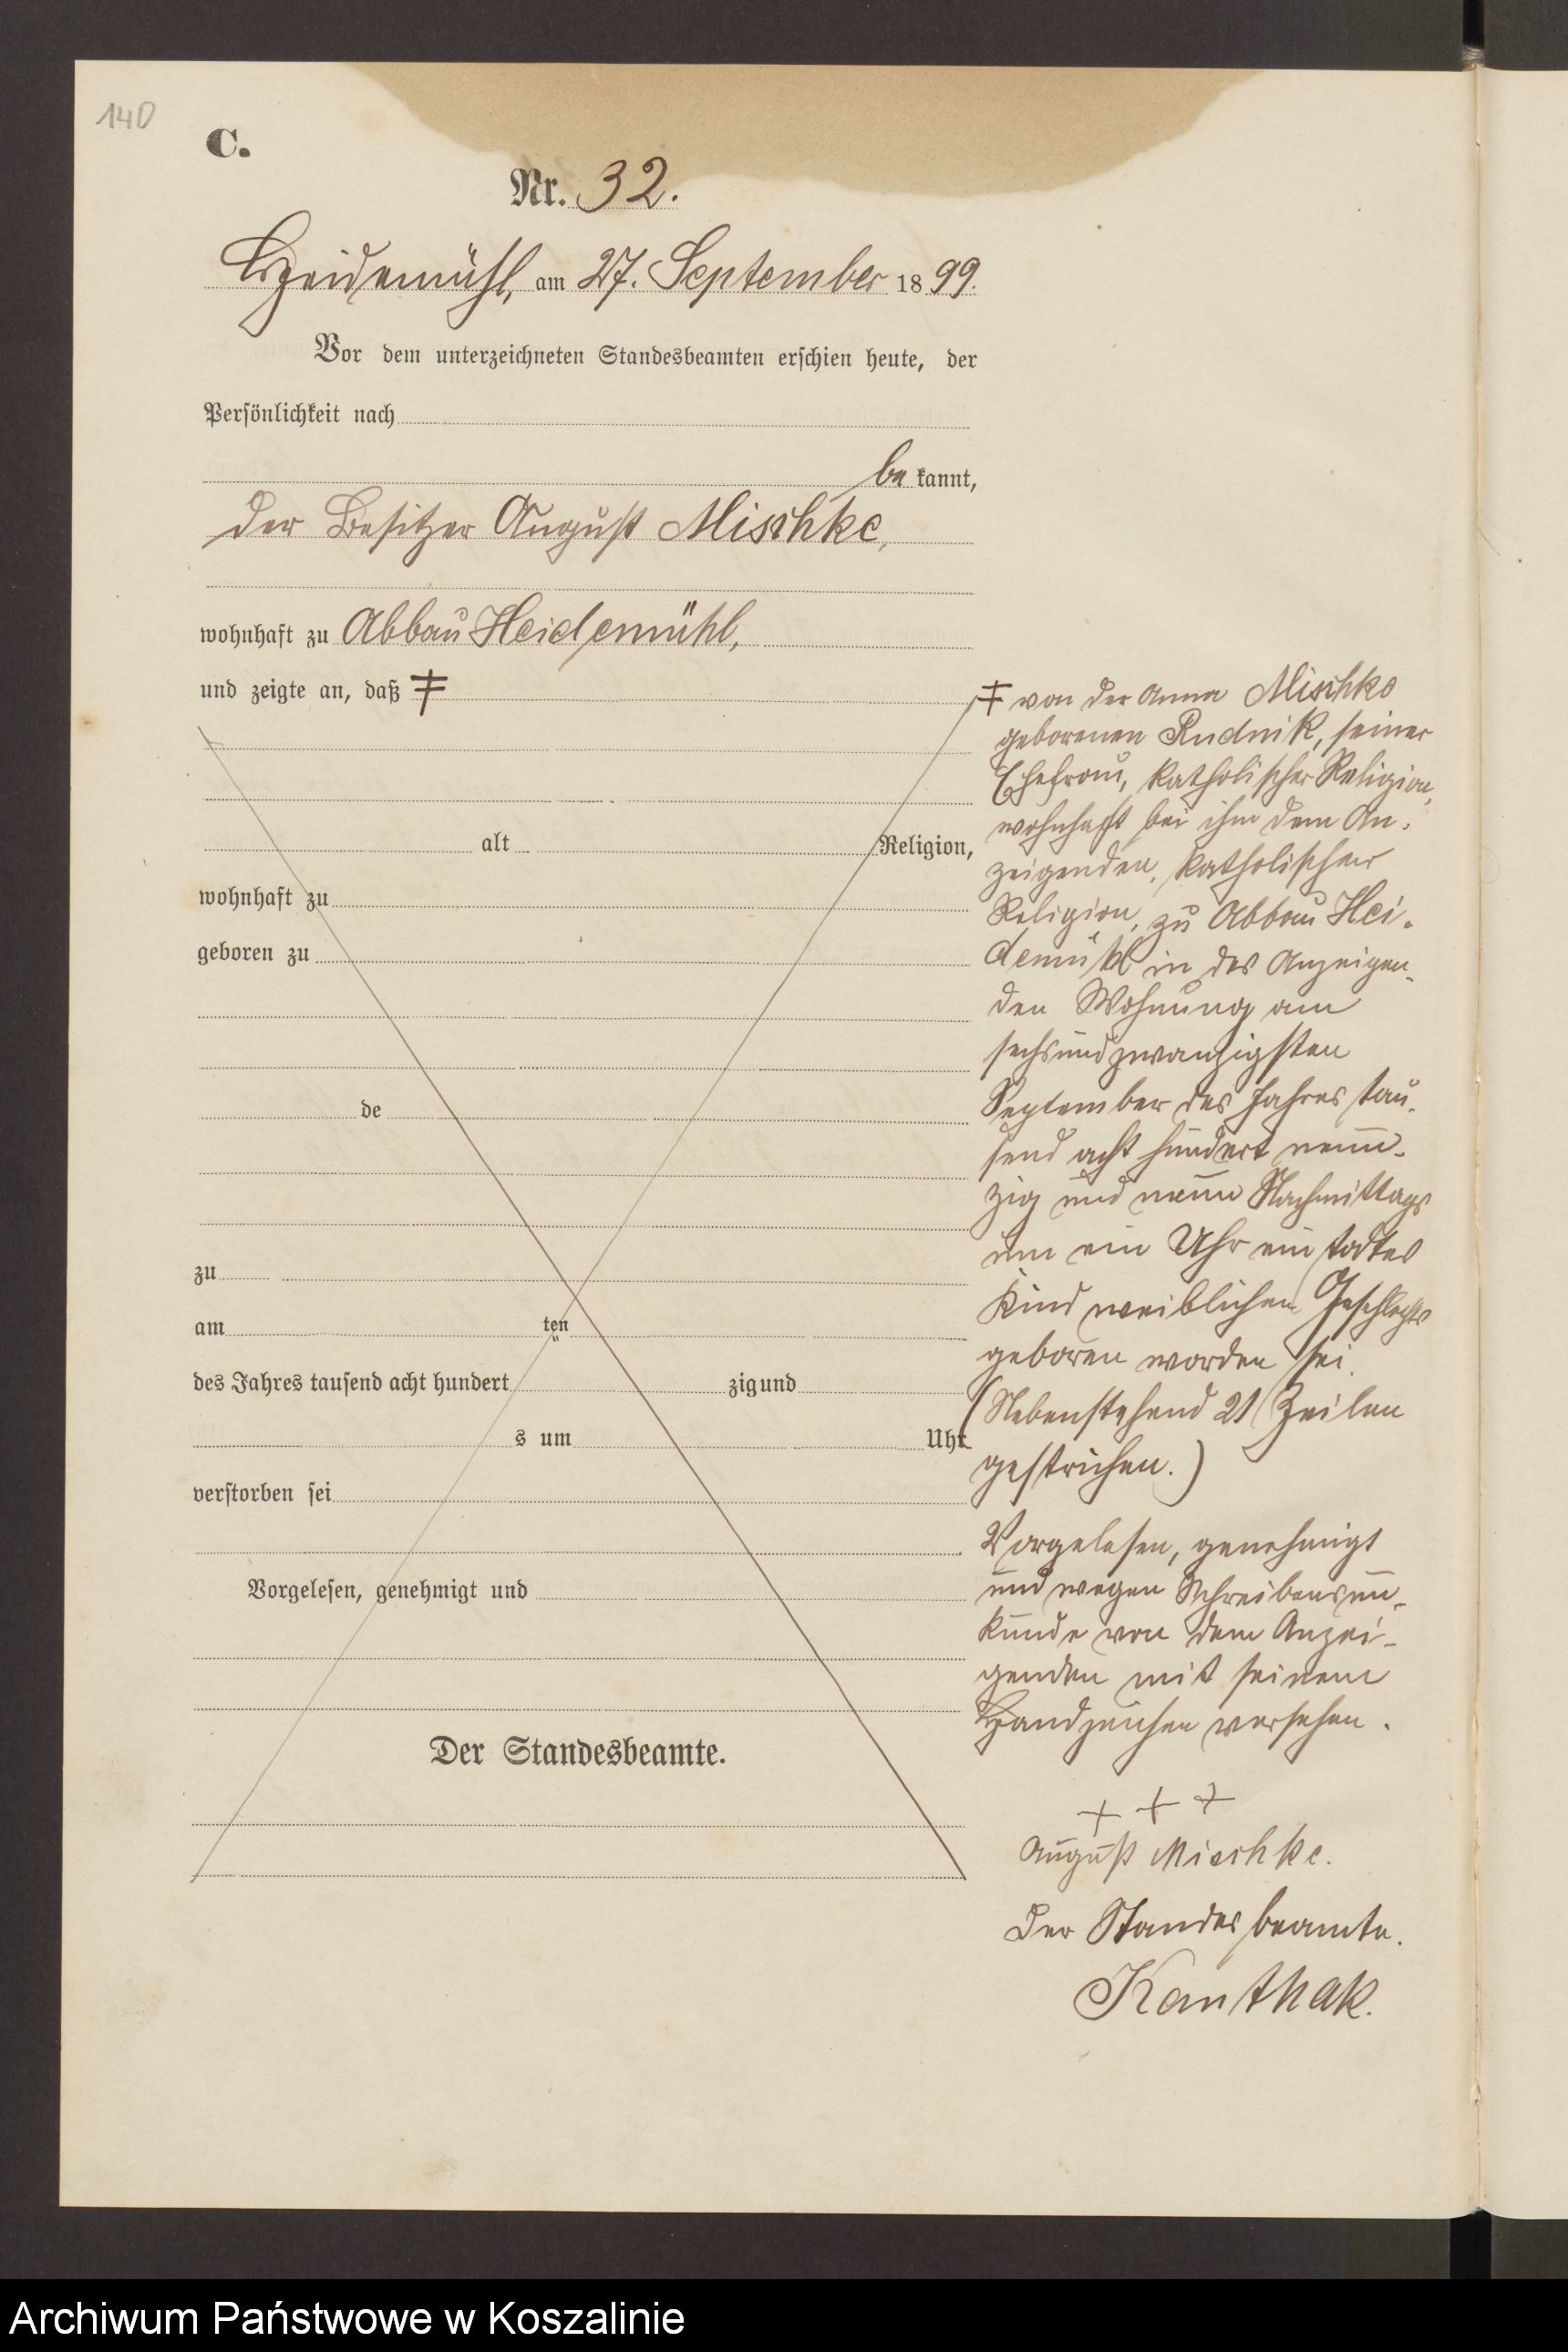 140
C.
Nr. 32.
Heidemühl, am 27. September 1899.
Vor dem unterzeichneten Standesbeamten erschien heute, der
Persönlichkeit nach
be kannt,
der Besitzer August Mischke,
wohnhaft zu Abbau Heidemühl,
und zeigte an, daß ‡
alt Religion,
wohnhaft zu
geboren zu
de
zu
am ten
des Jahres tausend acht hundert zig und
s um Uhr
verstorben sei
Vorgelesen, genehmigt und
Der Standesbeamte.
‡ von der Anna Mischke
geborenen Rudnik, seiner
Ehefrau, katholischer Religion,
wohnhaft bei ihm dem An-
zeigenden, katholischer
Religion, zu Abbau Hei-
demühl in des Anzeigen-
den Wohnung am
sechsundzwanzigsten
September des Jahres tau-
send acht hundert neun-
zig und neun Nachmittags
um ein Uhr ein todtes
Kind weiblichen Geschlechts
geboren worden sei.
(Nebenstehend 21 Zeilen
gestrichen.)
Vorgelesen, genehmigt
und wegen Schreibensun-
kunde von dem Anzei-
genden mit seinem
Handzeichen versehen.
+ + +
August Mischke.
Der Standesbeamte.
Kanthak.
Archiwum Państwowe w Koszalinie